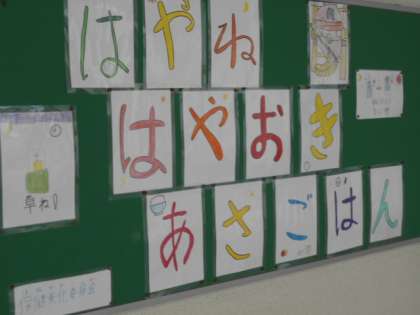 はやね
はやおき
あさごはん
早ね!